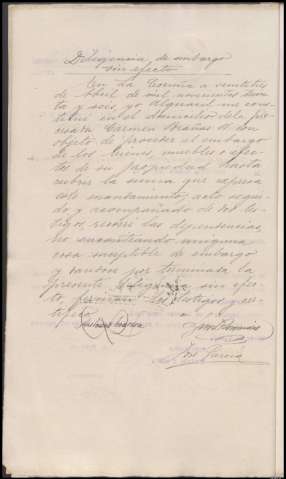 Diligencia de embargo
sin efecto
En La Coruña a veintitres
de Abril de mil novecientos trein
ta y seis, yo, Alguacil me cons
titui en el domicilio de la pro
cesada Carmen con
objeto de proceder al embargo
de los bienes muebles o efec
tos de su propiedad hasta
cubrir la suma que expresa
este mandamiento, acto segui
do y acompañado de dos tes
tigos, recorri las dependencias,
no encontrando ninguna
cosa susceptible de embargo
y tambien por terminada la
presente diligencia sin efec
to, firman los testigos y cer
tifico
José
José García